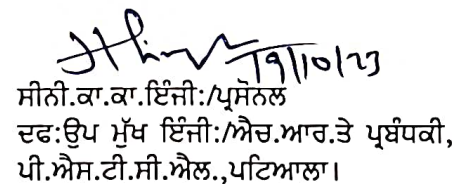 19/10/23
ਸੀਨੀ.ਕਾ.ਕਾ.ਇੰਜੀ:/ਪ੍ਰਸੋਨਲ
ਦਫ:ਉਪ ਮੁੱਖ ਇੰਜੀ:/ਐਚ.ਆਰ.ਤੇ ਪ੍ਰਬੰਧਕੀ,
ਪੀ.ਐਸ.ਟੀ.ਸੀ.ਐਲ.,ਪਟਿਆਲਾ।